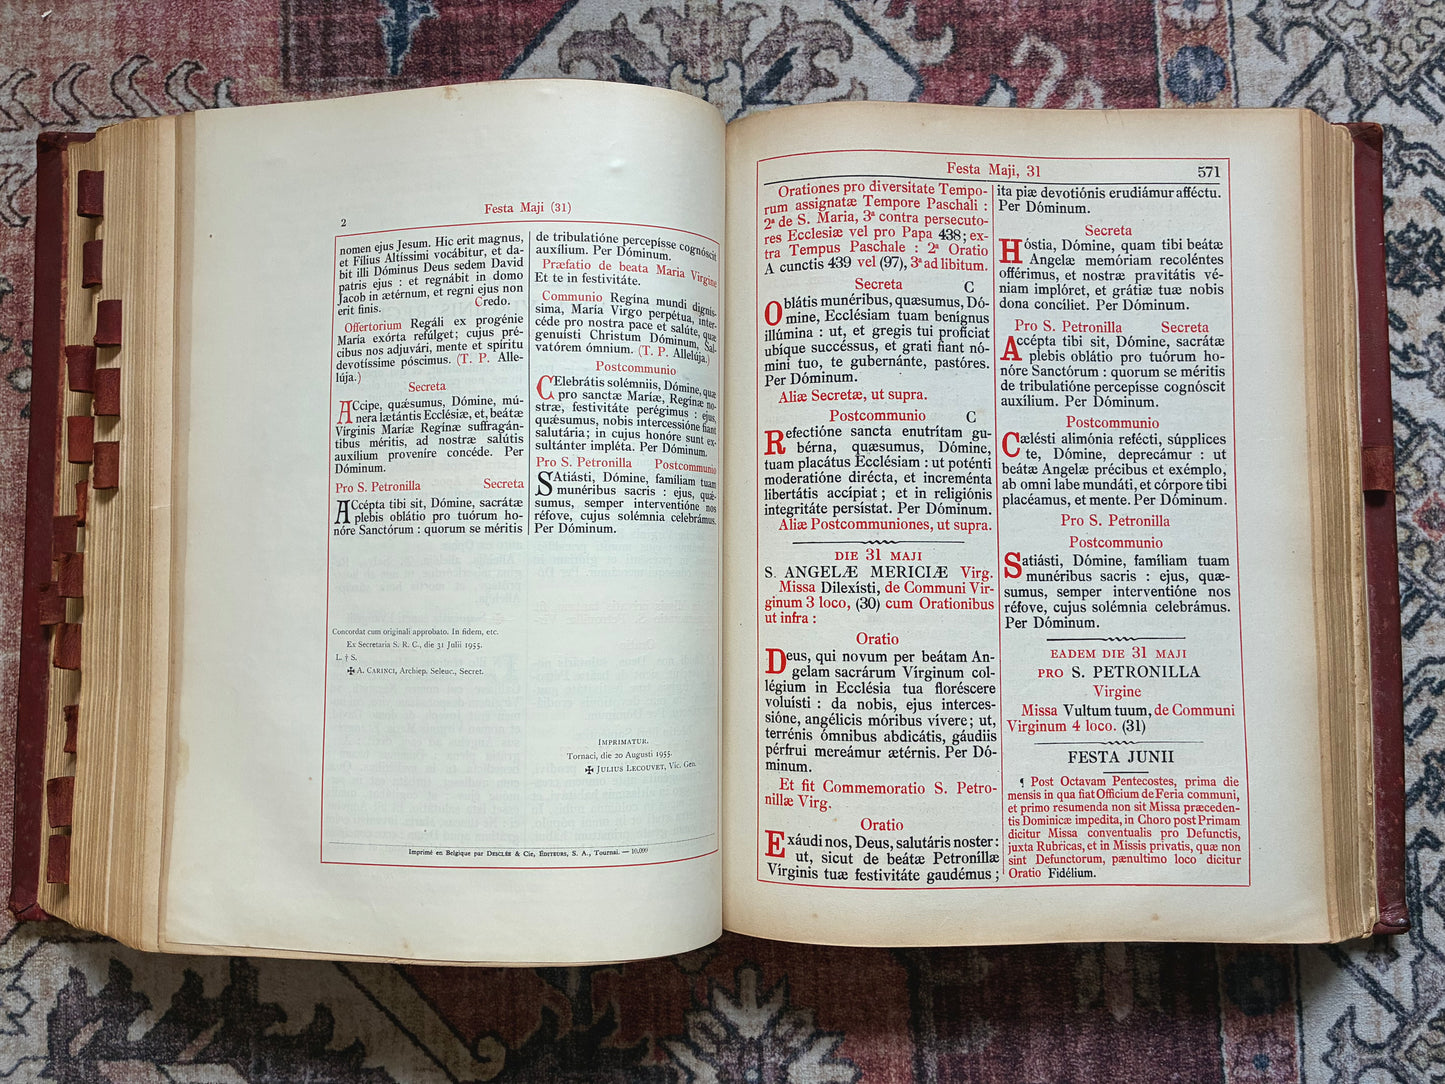 2
Festa Maji (31)
nomen ejus Jesum. Hic erit magnus,
et Fílius Altíssimi vocábitur, et da-
bit illi Dóminus Deus sedem David
patris ejus : et regnábit in domo
Jacob in ætérnum, et regni ejus non
erit finis.
Credo.
Offertorium Regáli ex progénie
María exórta refúlget; cujus pré-
cibus nos adjuvári, mente et spíritu
devotíssime póscimus. (T. P. Alle-
lúja.)
Secreta
ACcipe, quǽsumus, Dómine, mú-
nera lætántis Ecclésiæ, et, beátæ
Vírginis Maríæ Regínæ suffragán-
tibus méritis, ad nostræ salútis
auxílium proveníre concéde. Per
Dóminum.
Pro S. Petronilla Secreta
ACcépta tibi sit, Dómine, sacrátæ
plebis oblátio pro tuórum ho-
nóre Sanctórum : quorum se méritis
de tribulatióne percepísse cognóscit
auxílium. Per Dóminum.
Præfatio de beata Maria Virgine
Et te in festivitáte.
Communio Regína mundi dignís-
sima, María Virgo perpétua, inter-
céde pro nostra pace et salúte, quæ
genuísti Christum Dóminum, Sal-
vatórem ómnium. (T. P. Allelúja.)
Postcommunio
CElebrátis solémniis, Dómine, quæ
pro sanctæ Maríæ, Regínæ no-
stræ, festivitáte perégimus : ejus,
quǽsumus, nobis intercessióne fiant
salutária; in cujus honóre sunt ex-
sultánter impléta. Per Dóminum.
Pro S. Petronilla Postcommunio
SAtiásti, Dómine, famíliam tuam
munéribus sacris : ejus, quǽ-
sumus, semper interventióne nos
réfove, cujus solémnia celebrámus.
Per Dóminum.
Concordat cum originali approbato. In fidem, etc.
Ex Secretaria S. R. C., die 31 Julii 1955.
L. † S.
✠ A. CARINCI, Archiep. Seleuc., Secret.
IMPRIMATUR.
Tornaci, die 20 Augusti 1955.
✠ JULIUS LECOUVET, Vic. Gen.
Imprimé en Belgique par DESCLÉE & Cie, ÉDITEURS, S. A., Tournai. — 10.099
Festa Maji, 31
571
Orationes pro diversitate Tempo-
rum assignatæ Tempore Paschali :
2ª de S. Maria, 3ª contra persecuto-
res Ecclesiæ vel pro Papa 438; ex-
tra Tempus Paschale : 2ª Oratio
A cunctis 439 vel (97), 3ª ad libitum.
Secreta C
Oblátis munéribus, quǽsumus, Dó-
mine, Ecclésiam tuam benígnus
illúmina : ut, et gregis tui profíciat
ubíque succéssus, et grati fiant nó-
mini tuo, te gubernánte, pastóres.
Per Dóminum.
Aliæ Secretæ, ut supra.
Postcommunio C
Refectióne sancta enutrítam gu-
bérna, quǽsumus, Dómine,
tuam placátus Ecclésiam : ut poténti
moderatióne dirécta, et increménta
libertátis accípiat ; et in religiónis
integritáte persístat. Per Dóminum.
Aliæ Postcommuniones, ut supra.
DIE 31 MAJI
S. ANGELÆ MERICIÆ Virg.
Missa Dilexísti, de Communi Vir-
ginum 3 loco, (30) cum Orationibus
ut infra :
Oratio
Deus, qui novum per beátam An-
gelam sacrárum Vírginum col-
légium in Ecclésia tua floréscere
voluísti : da nobis, ejus interces-
sióne, angélicis móribus vívere ; ut,
terrénis ómnibus abdicátis, gáudiis
pérfrui mereámur ætérnis. Per Dó-
minum.
Et fit Commemoratio S. Petro-
nillæ Virg.
Oratio
Exáudi nos, Deus, salutáris noster :
ut, sicut de beátæ Petroníllæ
Vírginis tuæ festivitáte gaudémus ;
ita piæ devotiónis erudiámur afféctu.
Per Dóminum.
Secreta
Hóstia, Dómine, quam tibi beátæ
Angelæ memóriam recoléntes
offérimus, et nostræ pravitátis vé-
niam implóret, et grátiæ tuæ nobis
dona concíliet. Per Dóminum.
Pro S. Petronilla Secreta
Accépta tibi sit, Dómine, sacrátæ
plebis oblátio pro tuórum ho-
nóre Sanctórum : quorum se méritis
de tribulatióne percepísse cognóscit
auxílium. Per Dóminum.
Postcommunio
Cælésti alimónia refécti, súpplices
te, Dómine, deprecámur : ut
beátæ Angelæ précibus et exémplo,
ab omni labe mundáti, et córpore tibi
placéamus, et mente. Per Dóminum.
Pro S. Petronilla
Postcommunio
Satiásti, Dómine, famíliam tuam
munéribus sacris : ejus, quǽ-
sumus, semper interventióne nos
réfove, cujus solémnia celebrámus.
Per Dóminum.
EADEM DIE 31 MAJI
PRO S. PETRONILLA
Virgine
Missa Vultum tuum, de Communi
Virginum 4 loco. (31)
FESTA JUNII
¶ Post Octavam Pentecostes, prima die
mensis in qua fiat Officium de Feria communi,
et primo resumenda non sit Missa præceden-
tis Dominicæ impedita, in Choro post Primam
dicitur Missa conventualis pro Defunctis,
juxta Rubricas, et in Missis privatis, quæ non
sint Defunctorum, pænultimo loco dicitur
Oratio Fidélium.